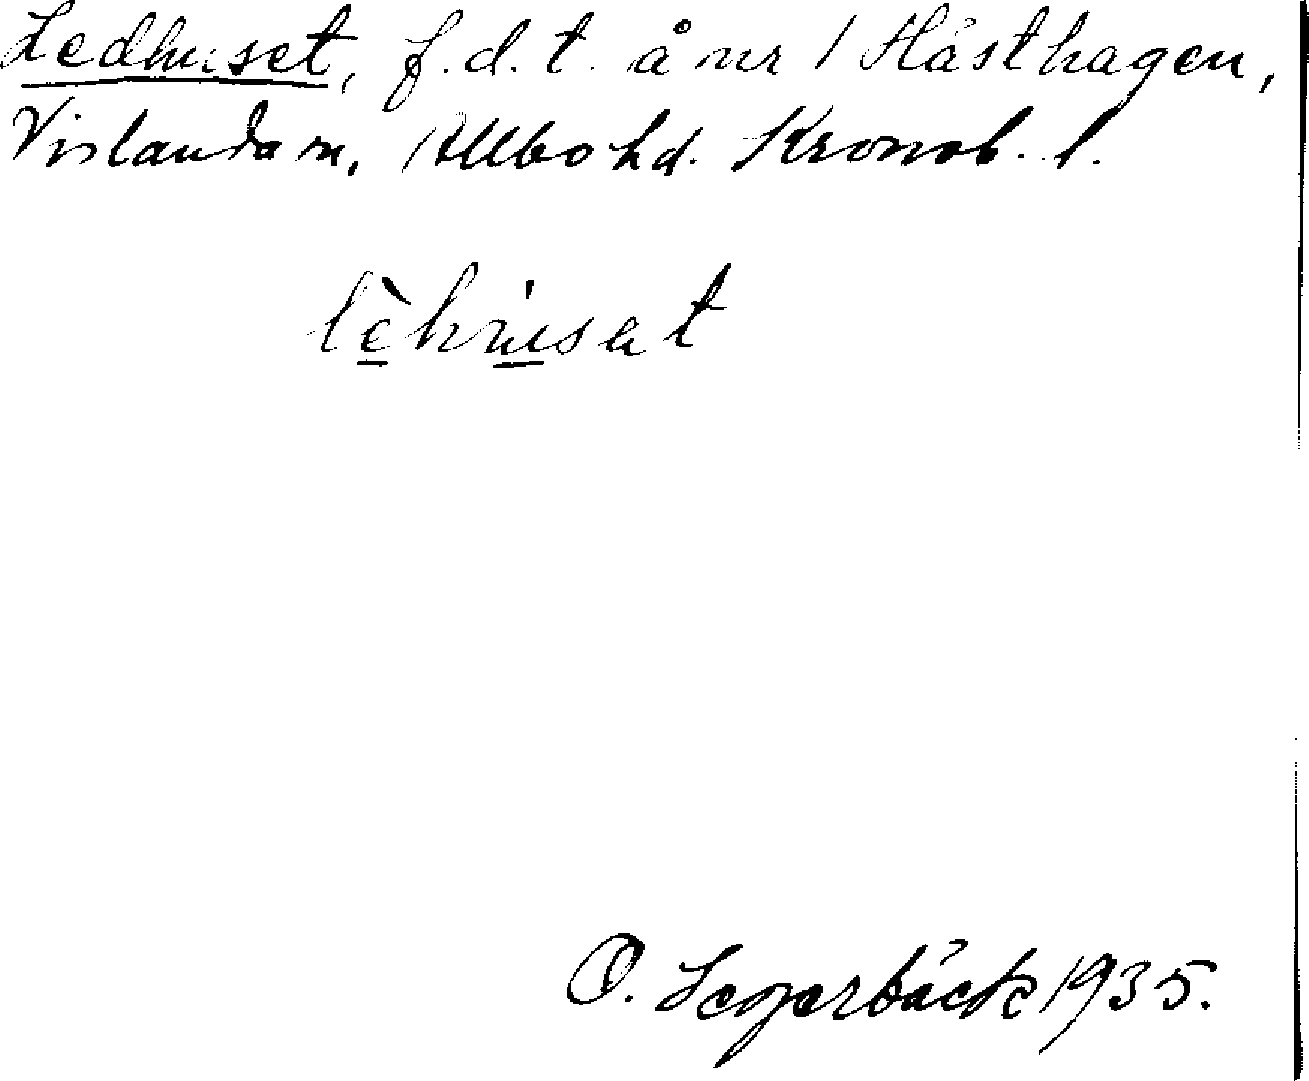 Ledhuset, f.d.t. å nr 1 Hästhagen,
Vislanda sn, Allbo hd. Kronob. l.
lèhúsat
O. Segerbäck 1935.